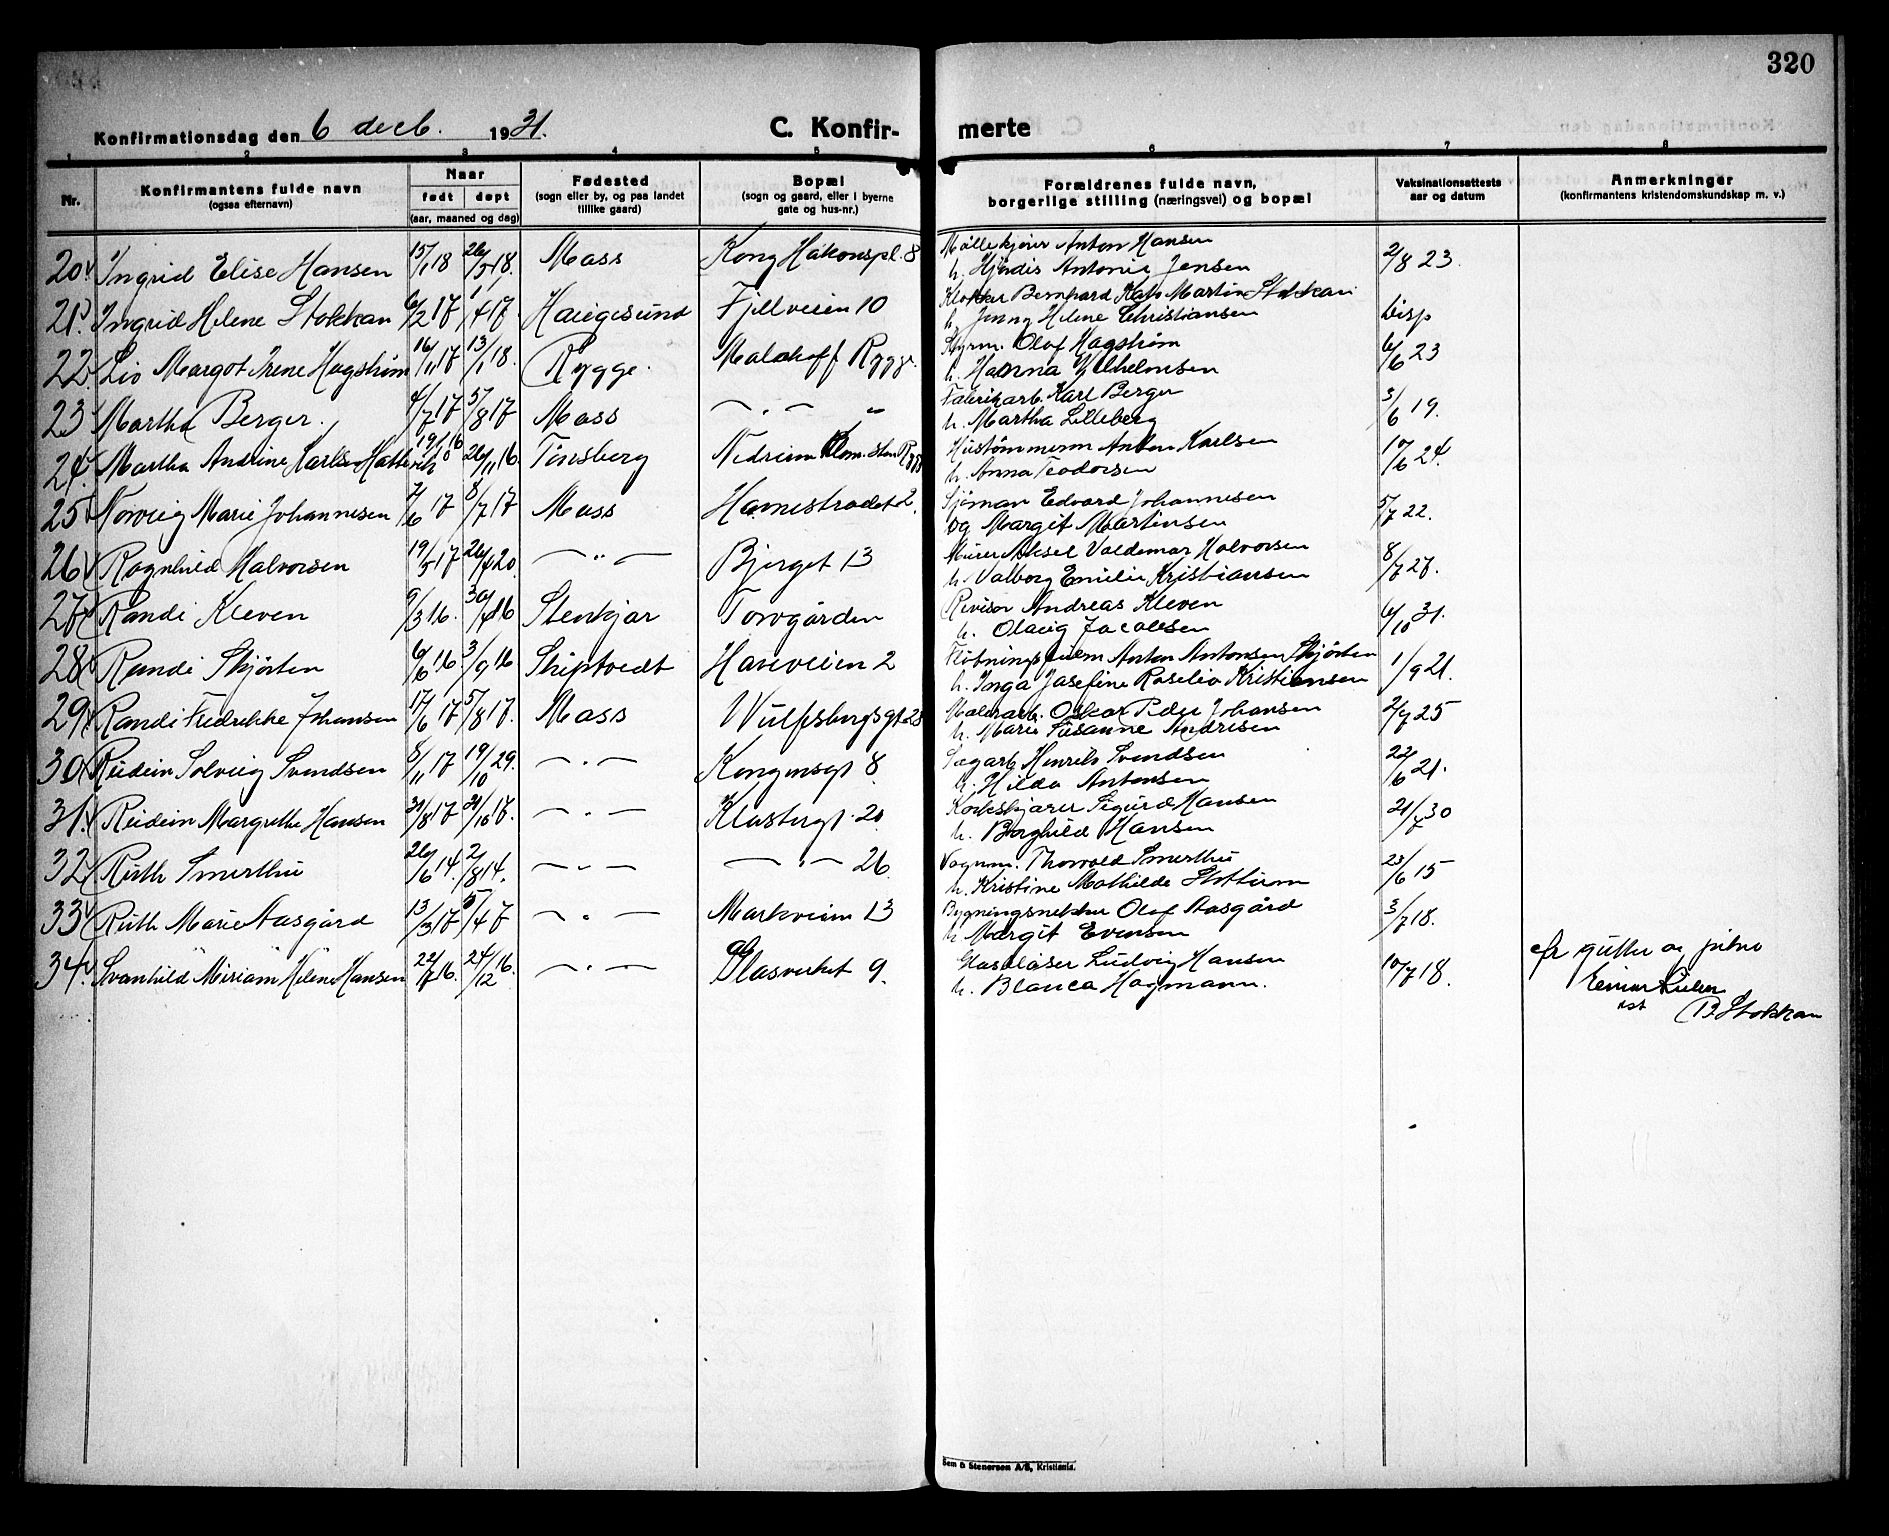 320
Konfirmationsdag den 6 decb. 1931.
C. Konfir- merte
1 2 3 4 5 6 7 8
Nr.
Konfirmantens fulde navn
(ogsaa efternavn)
Naar
født døpt
(aar, maaned og dag)
Fødested
(sogn eller by, og paa landet
tillike gaard)
Bopæl
(sogn og gaard, eller i byerne
gate og hus-nr.)
Forældrenes fulde navn,
borgerlige stilling (næringsvei) og bopæl
Vaksinationsattests
aar og datum
Anmerkninger
(konfirmantens kristendomskundskap m. v.)
20 Ingrid Elise Hansen 15/1 18 26/5 18. Moss Kong Håkonspl. 8 Anton Hansen
h. Hjördis Antonie Jensen 2/8 23.
21 Ingrid Helene Stokkan 6/2 17 1/4 17 Haugesund Fjellveien 10 Klokker Bernhard Martin Stokkan
h. Jenny Helene Christiansen
22. Liv Margot Irene Hagström 16/11 17 13/1 18. Rygge. Malakoff Rygge. Styrm. Olof Hagström
h. Hanna Vilhelmsen 6/6 23
23 Martha Berger. 4/7 17 5/8 17 Moss — " — " Fabrikarb. Karl Berger
h. Martha Lilleberg 3/6 19.
24. Martha Andrine Karlsen 19/10 16 26/11 16. Tönsberg Anton Karlsen
h. Anna Teodorsen 17/6 24.
25 Norveig Marie Johannesen 7/6 17 8/7 17 Moss Havnestrædet 2. Sjöman Edvard Johannesen
og Margit Martinsen 5/7 22.
26 Ragnhild Halvorsen 19/5 17 26/4 20. — " — Bjerget 13 Murer Aksel Valdemar Halvorsen
h. Valborg Emilie Kristiansen 8/7 27.
27 Randi Kleven 9/3 16. 30/4 16 Stenkjær Torvgården Revisor Andreas Kleven
h. Olaug Jacobsen 6/10 31.
28 Randi Skjörten 6/6 16 3/9 16 Skiptvedt Hareveien 2 Anton Antonsen Skjörten
h. Inga Josefine Roselia Kristiansen 1/9 21.
29 Randi Fredrikke Johansen 17/6 17 5/8 17. Moss Wulfsbergsgt. 28 Malerarb. Oskar Peder Johansen
h. Marie Susanne Andresen 2/7 25
30 Reidun Solveig Svendsen 8/11 17 19/10 29. — " — Kongensgt 8 Sagarb Henrik Svendsen
h. Hilda Antonsen 22/6 21.
31. Reidun Margrethe Hansen 31/8 17 21/10 17. — " — Klostergt. 20 Sigurd Hansen
h. Borghild Hansen 21/7 30
32 Ruth Smerthu 26/6 14. 2/8 14. — " — — " — 26 Vognm. Thorvald Smerthu
h. Kristine Mathilde 23/6 15
33 Ruth Marie Aasgård 13/3 17 5/4 17 — " — Markveien 13 Olof Aasgård
h. Margit Evensen 3/7 18.
34. Svanhild "Miriam" Helene Hansen 22/7 16. 24/12 16. — " — Glasverket 9. Glasblåser Ludvig Hansen
h. Blanca Hagmann. 10/7 18.
gutter og piker
Einar
B Stokkan
Sem & Stenersen A/S, Kristiania.